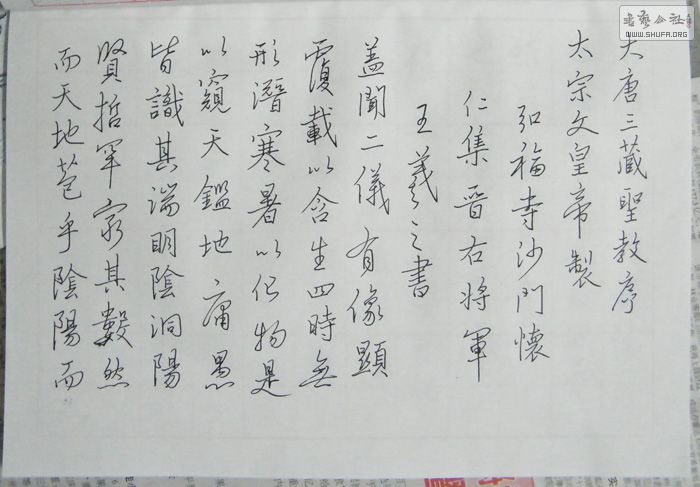 大唐三藏聖教序
太宗文皇帝製
弘福寺沙門懷
仁集晉右將軍
王羲之書
蓋聞二儀有像顯
覆載以含生四時無
形潛寒暑以化物是
以窺天鑑地庸愚
皆識其端明陰洞陽
賢哲罕窮其數然
而天地苞乎陰陽而
書藝公社
WWW.SHUFA.ORG